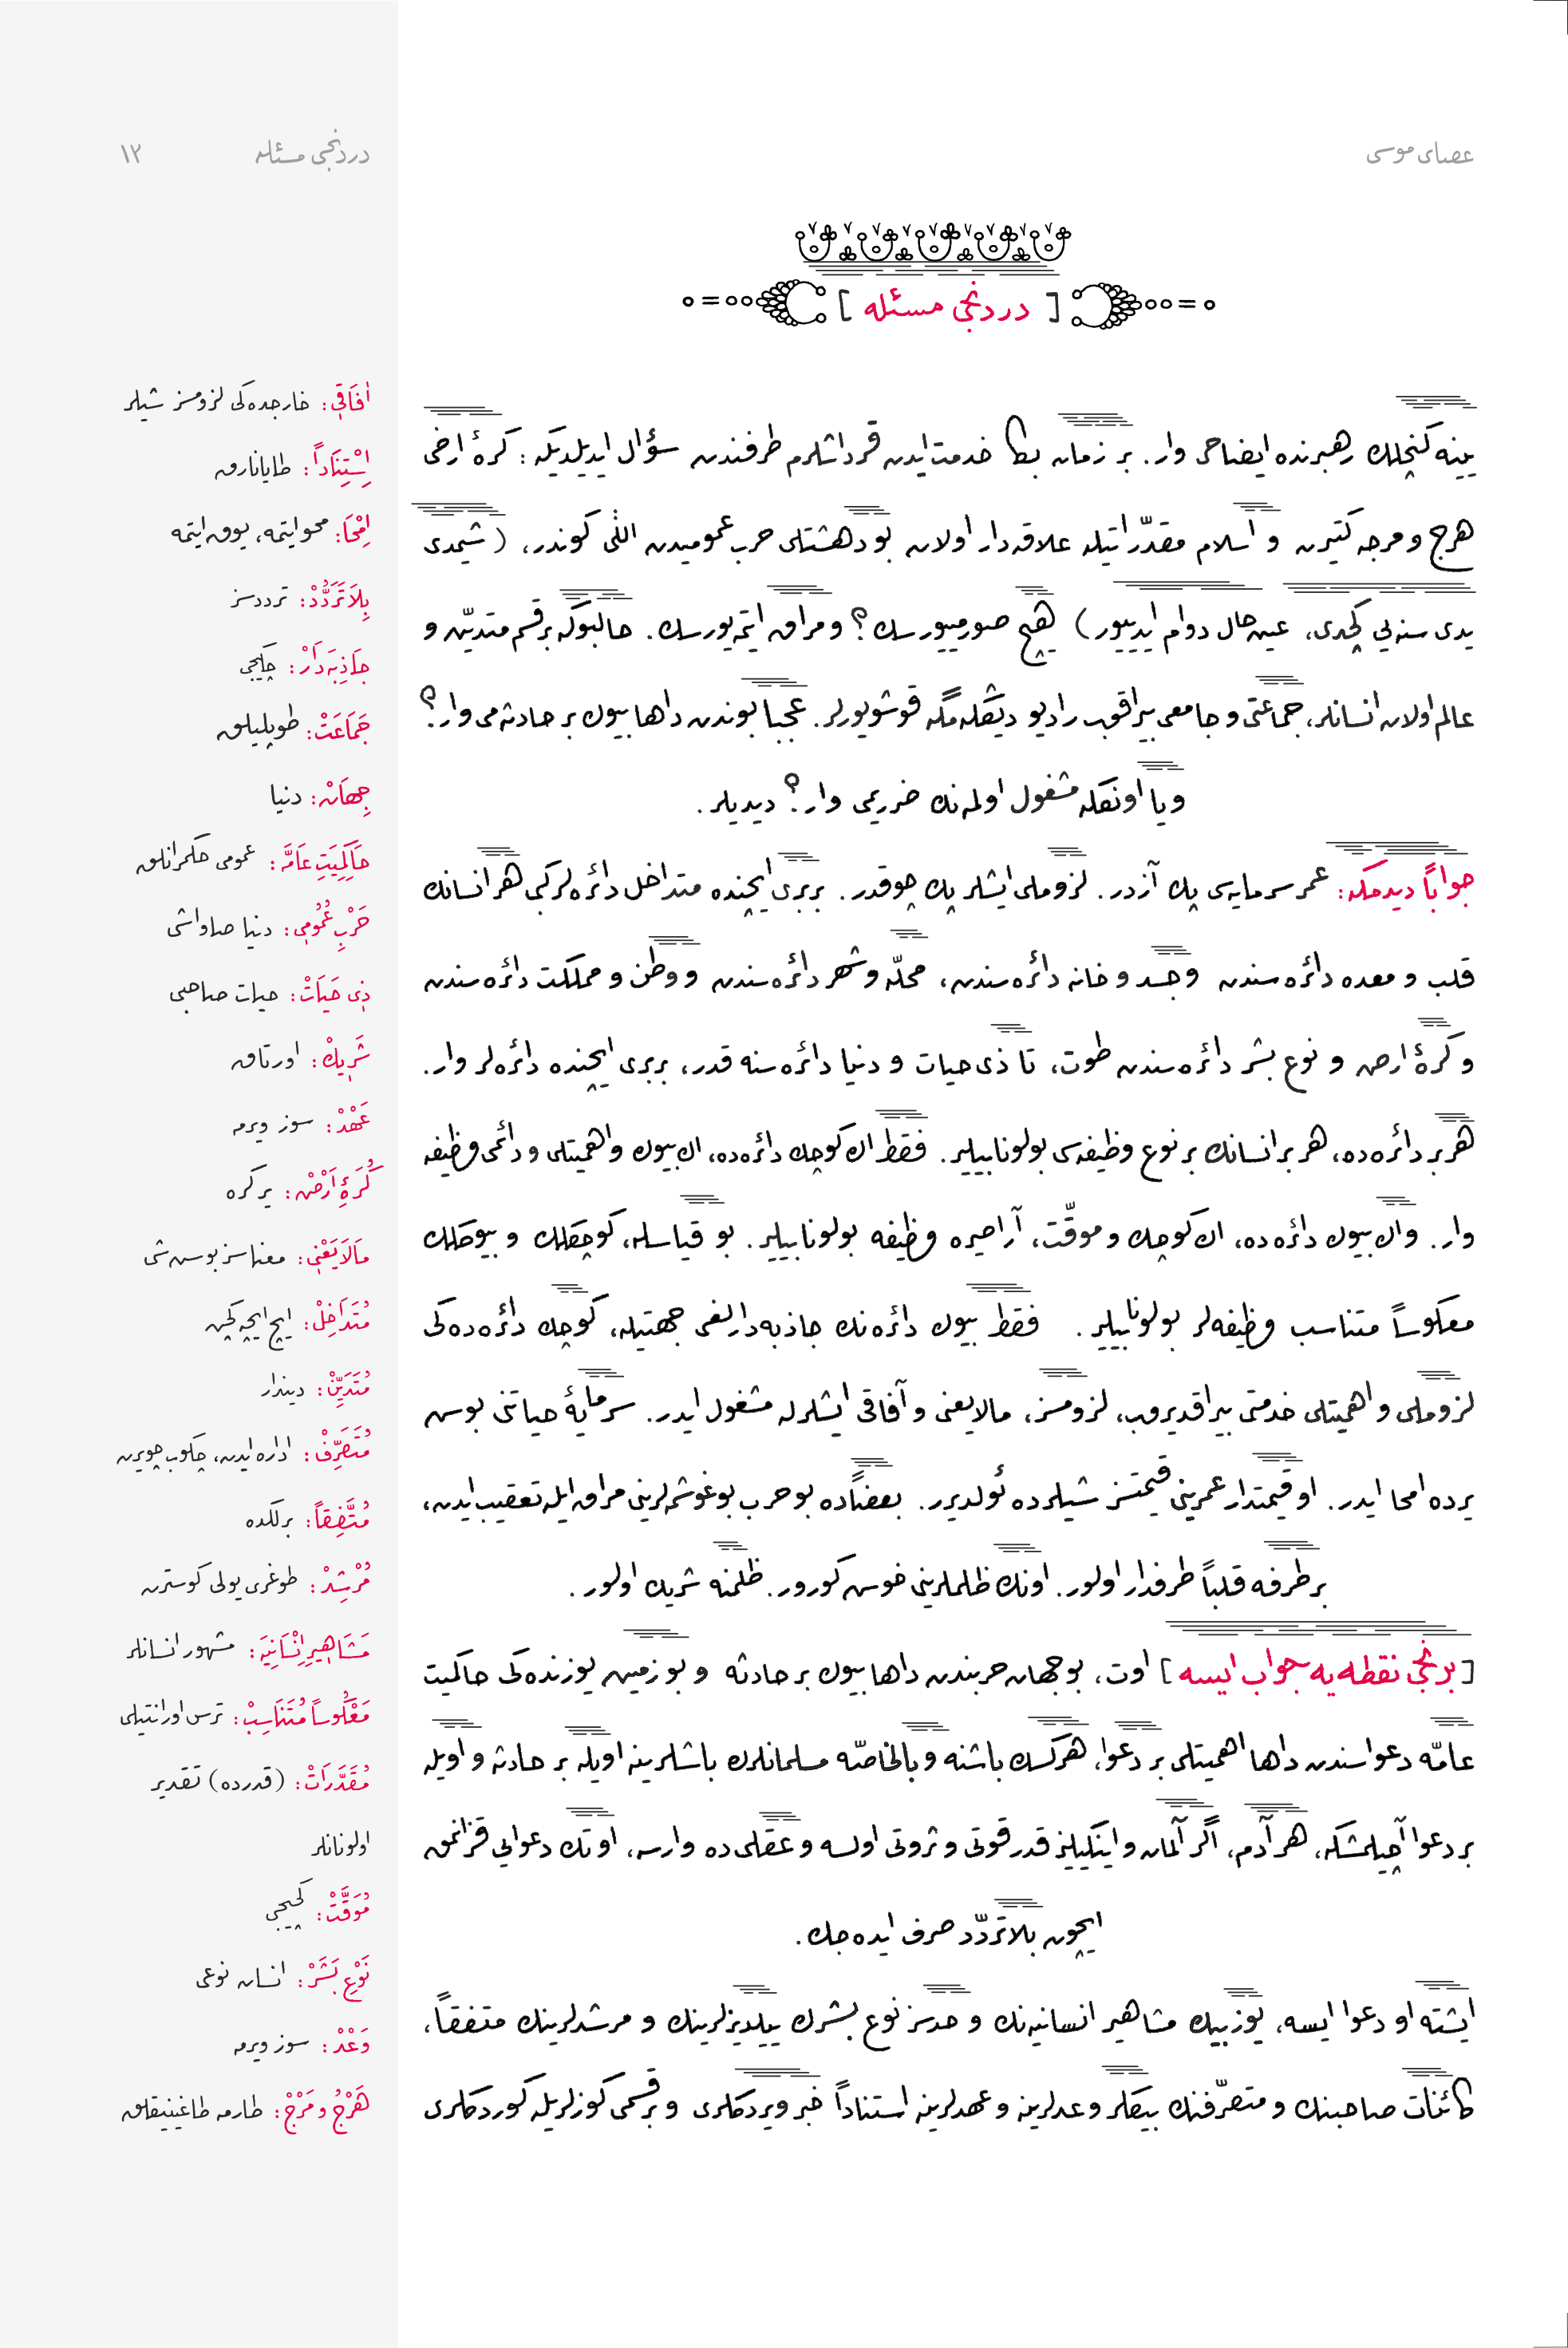 عصای موسی
دردنجی مسئله ١٢
[ دردنجی مسئله ]
يينه كنجلك رهبرنده ايضاحی وار. بر زمان بڭا خدمت ايدن قرداشلرم طرفندن سؤال ايديلديكه: كرۀ ارضی
هرج و مرجه كتيرن و اسلام مقدّراتيله علاقه‌دار اولان بو دهشتلی حرب عموميدن اللی كوندر، (شيمدی
يدی سنه‌يی كچدی، عين حال دوام ايدييور) هيچ صورمييورسك؟ و مراق ايتمه‌يورسك. حالبوكه بر قسم متديّن و
عالم اولان انسانلر، جماعتی و جامعی بيراقوب راديو ديڭله‌مگه قوشويورلر. عجبا بوندن داها بيوك بر حادثه‌می وار؟
ويا اونڭله مشغول اولمه‌نك ضرريمی وار؟ ديديلر.
جوابًا ديدمكه: عمر سرمايه‌سی پك آزدر. لزوملی ايشلر پك چوقدر. بربری ايچنده متداخل دائره‌لر كبی هر انسانك
قلب و معده دائره‌سندن و جسد و خانه دائره‌سندن، محلّه و شهر دائره‌سندن و وطن و مملكت دائره‌سندن
و كرۀ ارض و نوع بشر دائره‌سندن طوت، تا ذی حيات و دنيا دائره‌سنه قدر، بربری ايچنده دائره‌لر وار.
هر بر دائره‌ده، هر بر انسانك بر نوع وظيفه‌سی بولونابيلير. فقط اڭ كوچك دائره‌ده، اڭ بيوك و اهميتلی و دائمی وظيفه
وار. و اڭ بيوك دائره‌ده، اڭ كوچك و موقّت، آراصيره وظيفه بولونابيلير. بو قياسله، كوچكلك و بيوكلك
معكوسًا متناسب وظيفه‌لر بولونابيلير. فقط بيوك دائره‌نك جاذبه‌دارلغی جهتيله، كوچك دائره‌ده‌كی
لزوملی و اهميتلی خدمتی بيراقديروب، لزومسز، مالايعنی و آفاقی ايشلرله مشغول ايدر. سرمايۀ حياتنی بوس
يرده امحا ايدر. او قيمتدار عمرينی قيمتسز شيلرده ئولديرر. بعضًاده بو حرب بوغوشمه‌لرينی مراق ايله تعقيب ايدن،
بر طرفه قلبًا طرفدار اولور. اونك ظلملرينی خوس كورور. ظلمنه شريك اولور.
[ برنجی نقطه‌يه جواب ايسه ] اوت، بو جهان حربندن داها بيوك بر حادثه و بو زمين يوزنده‌كی حاكميت
عامّه دعواسندن داها اهميتلی بر دعوا، هركسك باشنه و بالخاصّه مسلمانلرك باشلرينه اويله بر حادثه و اويله
بر دعوا آچيلمشكه، هر آدم، اگر آلمان و اينگيليز قدر قوتی و ثروتی اولسه و عقلی ده وارسه، او تك دعوايی قزانمق
ايچون بلاتردّد صرف ايده‌جك.
ايشته او دعوا ايسه، يوزبيك مشاهير انسانيه‌نك و حدسز نوع بشرك ييلديزلرينك و مرشدلرينك متفقًا،
كائنات صاحبنك و متصرّفنك بيڭلر وعدلرينه و عهدلرينه استنادًا خبر ويردكلری و بر قسمی كوزلريله كوردكلری
اٰفَاقِی: خارجده‌كی لزومسز شيلر
اِسْتِنَادًا: طايانارق
اِمْحَا: محو ايتمه، يوق ايتمه
بِلَاتَرَدُّدْ: ترددسز
جَاذِبَه‌دَارْ: چكيجی
جَمَاعَتْ: طوپليلق
جِهَانْ: دنيا
حَاكِمِيَتِ عَامَّه: عمومی حكمرانلق
حَرْبِ عُمُومِی: دنيا صاواشی
ذِی حَيَاتْ: حيات صاحبی
شَرِيكْ: اورتاق
عَهْدْ: سوز ويرمه
كُرَۀِ اَرْضْ: ير كره
مَالَايَعْنِی: معناسز بوس شی
مُتَدَاخِلْ: ايچ ايچه كچن
مُتَدَيِّنْ: ديندار
مُتَصَرِّفْ: اداره ايدن، چكوب چويرن
مُتَّفِقًا: برلكده
مُرْشِدْ: طوغری يولی كوسترن
مَشَاهِيرِ اِنْسَانِيَه: مشهور انسانلر
مَعْكُوسًا مُتَنَاسِبْ: ترس اورانتيلی
مُقَدَّرَاتْ: (قدرده) تقدير
اولونانلر
مُوَقَّتْ: كچيجی
نَوْعِ بَشَرْ: انسان نوعی
وَعْدْ: سوز ويرمه
هَرْجُ و مَرْجْ: طارمه طاغينيقلق